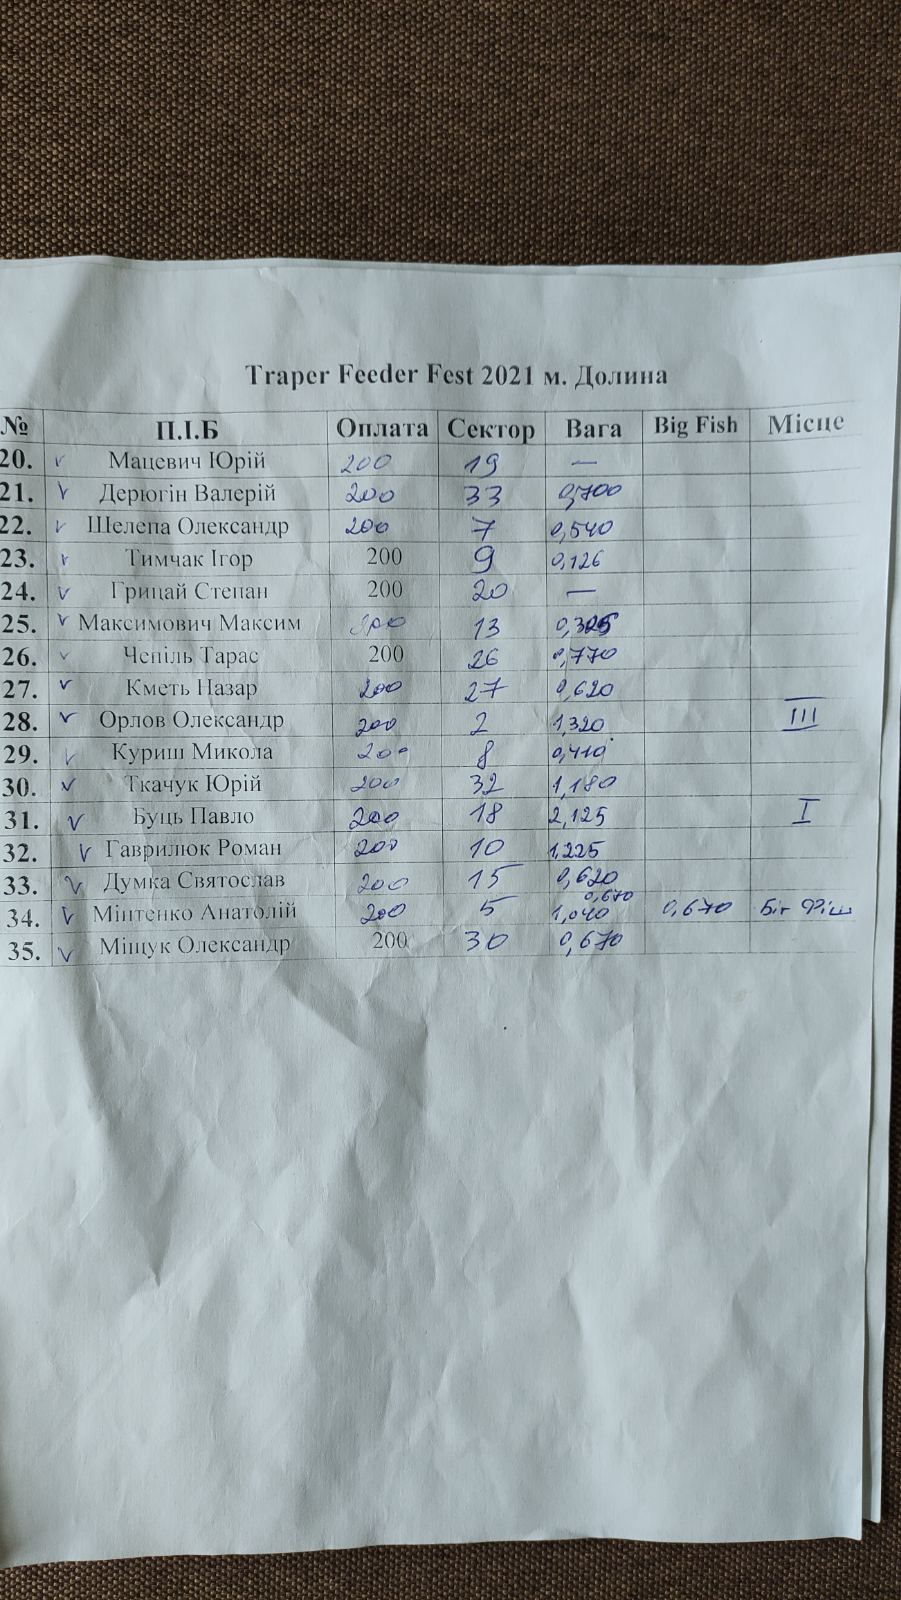 Traper Feeder Fest 2021 м. Долина
№ П.І.Б Оплата Сектор Вага Big Fish Місце
20. v Мацевич Юрій 200 19 —
21. v Дерюгін Валерій 200 33 0,700
22. v Шелепа Олександр 200 7 0,540
23. v Тимчак Ігор 200 9 0,126
24. v Грицай Степан 200 20 —
25. v Максимович Максим 200 13
26. v Чепіль Тарас 200 26 0,770
27. v Кметь Назар 200 27 0,620
28. v Орлов Олександр 200 2 1,320 III
29. v Куриш Микола 200 8 0,410
30. v Ткачук Юрій 200 32 1,180
31. v Буць Павло 200 18 2,125 I
32. v Гаврилюк Роман 200 10 1,225
33. v Думка Святослав 200 15 0,620
0,670
34. v Мінтенко Анатолій 200 5 1,040 0,670 Біг Фіш
35. v Міщук Олександр 200 30 0,670